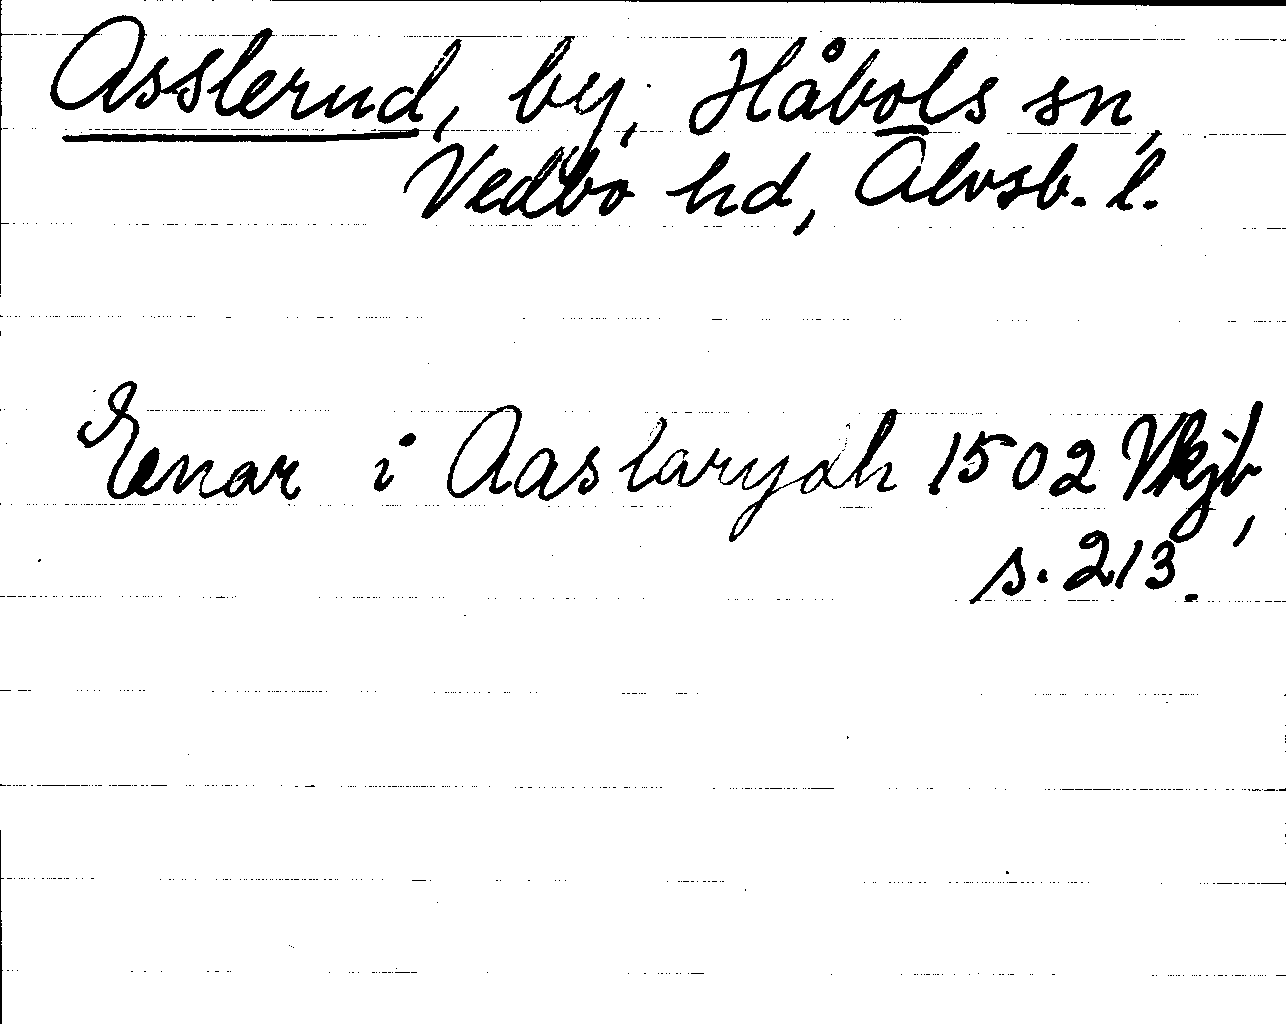 Asslerud, by, Håbols sn,
Vedbo hd, Älvsb. l.
Einar i Aaslarydh 1502 Vkjb,
s. 213.